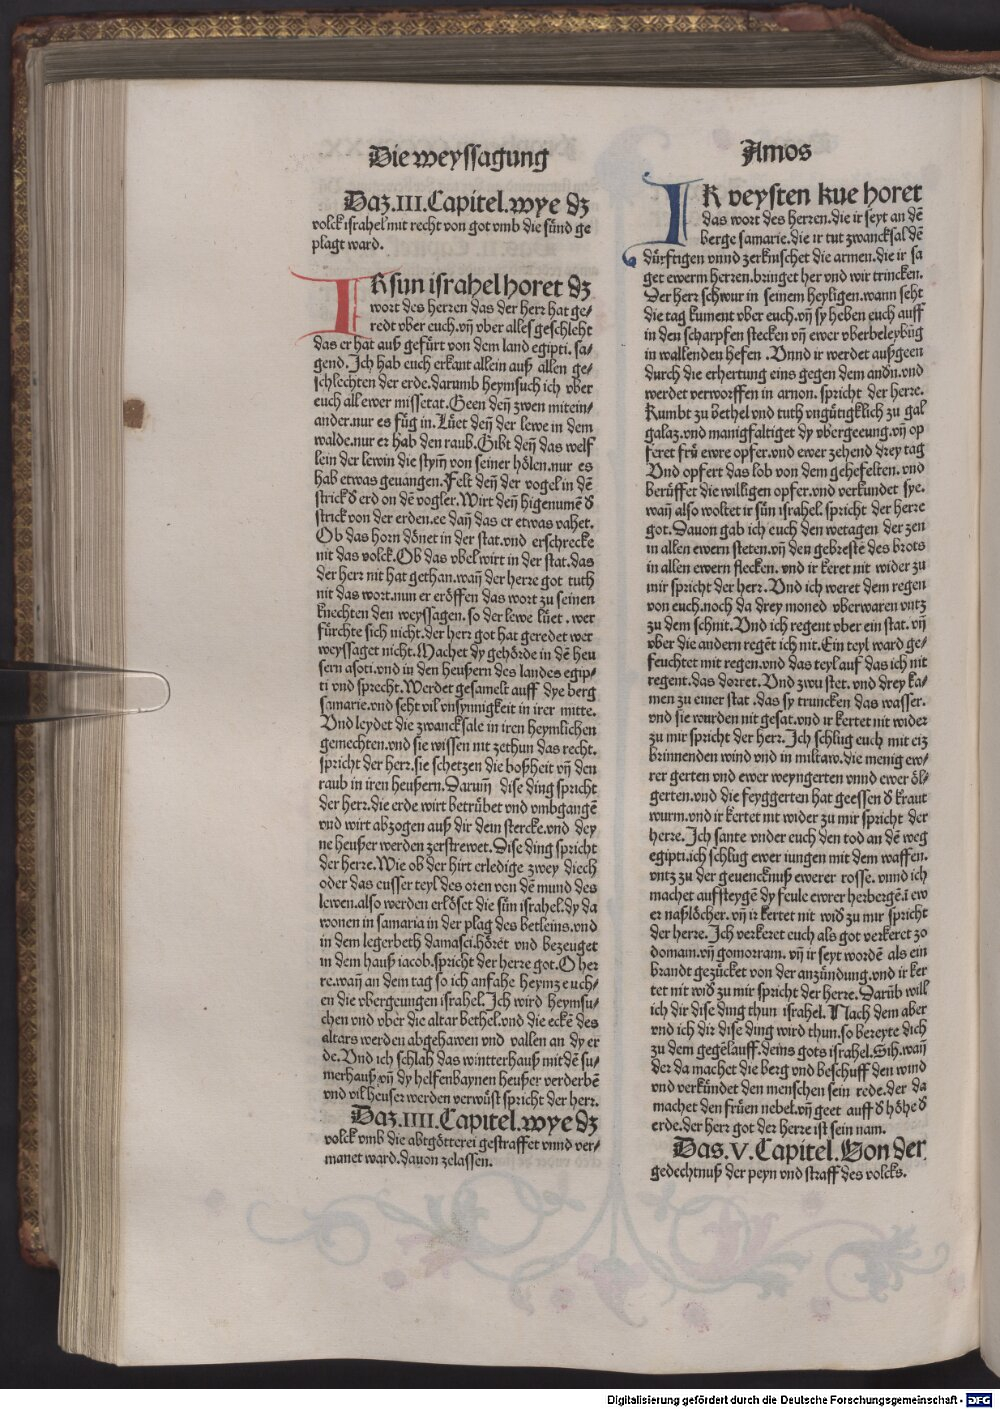 Die weyssagung
Amos
Daz.III.Capitel.wye dz
volck israhel mit recht von got vmb die sünd ge
plagt ward.
IR sun israhel horet dz
wort des herren das der herr hat ge⸗
redt vber euch.vñ vber alles geschleht
das er hat auß gefürt von dem land egipti.sa⸗
gend.Ich hab euch erkant allein auß allen ge⸗
schlechten der erde.darumb heymsuch ich vber
euch all ewer missetat.Geen deñ zwen mitein⸗
ander.nur es füg in.Lüet deñ der lewe in dem
walde.nur er hab den raub.Gibt deñ das welf
lein der lewin die stym̃ von seiner hölen.nur es
hab etwas geuangen.Felt deñ der vogel in dē
strick d̕ erd on dē vogler.Wirt deñ higenumē d̕
strick von der erden.ee dañ das er etwas vahet.
Ob das horn dönet in der stat.vnd erschrecke
nit das volck.Ob das vbel wirt in der stat.das
der herr nit hat gethan.wañ der herre got tuth
nit das wort.nun er eröffen das wort zu seinen
knechten den weyssagen.so der lewe lüet.wer
fürchte sich nicht.der herr got hat geredet wer
weyssaget nicht.Machet dy gehörde in dē heu
sern asoti.vnd in den heußern des landes egip⸗
ti vnd sprecht.Werdet gesamelt auff dye berg
samarie.vnd seht vil vnsynnigkeit in irer mitte.
Vnd leydet die zwancksale in iren heymlichen
gemechten.vnd sie wissen nit zethun das recht.
spricht der herr.sie schetzen die boßheit vñ den
raub in iren heußern.Darum̃ dise ding spricht
der herr.die erde wirt betrübet vnd vmbgangē
vnd wirt abzogen auß dir dein stercke.vnd dey
ne heußer werden zerstrewet.Dise ding spricht
der herre.Wie ob der hirt erledige zwey diech
oder das eusser teyl des oren von dē mund des
lewen.also werden erlöset die sün israhel.dy da
wonen in samaria in der plag des betleins.vnd
in dem legerbeth damasci.höret vnd bezeuget
in dem hauß iacob.spricht der herre got.O her
re.wañ an dem tag so ich anfahe heymzeuch⸗
en die vbergeungen israhel.Ich wird heymsu⸗
chen vnd vber die altar bethel.vnd die eckē des
altars werden abgehawen vnd vallen an dy er
de.Vnd ich schlah das wintterhauß mit dē su⸗
merhauß.vñ dy helfenbaynen heußer verderbē
vnd vil heuser werden verwüst spricht der herr.
Daz.IIII.Capitel.wye dz
volck vmb die abtgötterei gestraffet vnnd ver⸗
manet ward.dauon zelassen.
IR veysten kue horet
das wort des herren.die ir seyt an dē
berge samarie.die ir tut zwancksal dē
dürftigen vnnd zerknischet die armen.die ir sa
get ewerm herren.bringet her vnd wir trincken.
Der herr schwur in seinem heyligen.wann seht
die tag kument vber euch.vñ sy heben euch auff
in den scharpfen stecken vñ ewer vberbeleybūg
in wallenden hefen.Vnnd ir werdet außgeen
durch die erhertung eins gegen dem andn̄.vnd
werdet verworffen in arnon.spricht der herre.
Kumbt zu bethel vnd tuth vngütigklich zu gal
galaz.vnd manigfaltiget dy vbergeeung.vñ op
feret frü ewre opfer.vnd ewer zehend drey tag
Vnd opfert das lob von dem gehefelten.vnd
berüffet die willigen opfer.vnd verkundet sye.
wañ also woltet ir sün israhel.spricht der herre
got.Dauon gab ich euch den wetagen der zen
in allen ewern steten.vñ den gebreste des brots
in allen ewern flecken.vnd ir keret nit wider zu
mir spricht der herr.Vnd ich weret dem regen
von euch.noch da drey moned vberwaren vntz
zu dem schnit.Vnd ich regent vber ein stat.vñ
vber die andern regēt ich nit.Ein teyl ward ge⸗
feuchtet mit regen.vnd das teyl auf das ich nit
regent.das dorret.Vnd zwu stet.vnd drey ka⸗
men zu einer stat.das sy truncken das wasser.
vnd sie wurden nit gesat.vnd ir kertet nit wider
zu mir spricht der herr.Ich schlug euch mit eiz
brinnenden wind vnd in miltaw.die menig ew⸗
rer gerten vnd ewer weyngerten vnnd ewer öl⸗
gerten.vnd die feyggerten hat geessen d̕ kraut
wurm.vnd ir kertet nit wider zu mir spricht der
herre.Ich sante vnder euch den tod an dē weg
egipti.ich schlug ewer iungen mit dem waffen.
vntz zu der geuencknuß ewerer rosse.vnnd ich
machet auffsteygē dy feule ewrer herbergē.ī ew
er naßlöcher.vñ ir kertet nit wid̕ zu mir spricht
der herre.Ich verkeret euch als got verkeret zo
domam.vñ gomorram.vñ ir seyt wordē als ein
brandt gezücket von der anzündung.vnd ir ker
tet nit wid̕ zu mir spricht der herre.Darūb will
ich dir dise ding thun israhel.Nach dem aber
vnd ich dir dise ding wird thun.so bereyte dich
zu dem gegēlauff.deins gots israhel.Sih.wañ
der da machet die berg vnd beschuff den wind
vnd verkündet den menschen sein rede.der da
machet den früen nebel.vñ geet auff d̕ höhe d̕
erde.der herr got der herre ist sein nam.
Das.V.Capitel.Von der
gedechtnuß der peyn vnd straff des volcks.
Digitalisierung gefördert durch die Deutsche Forschungsgemeinschaft - DFG